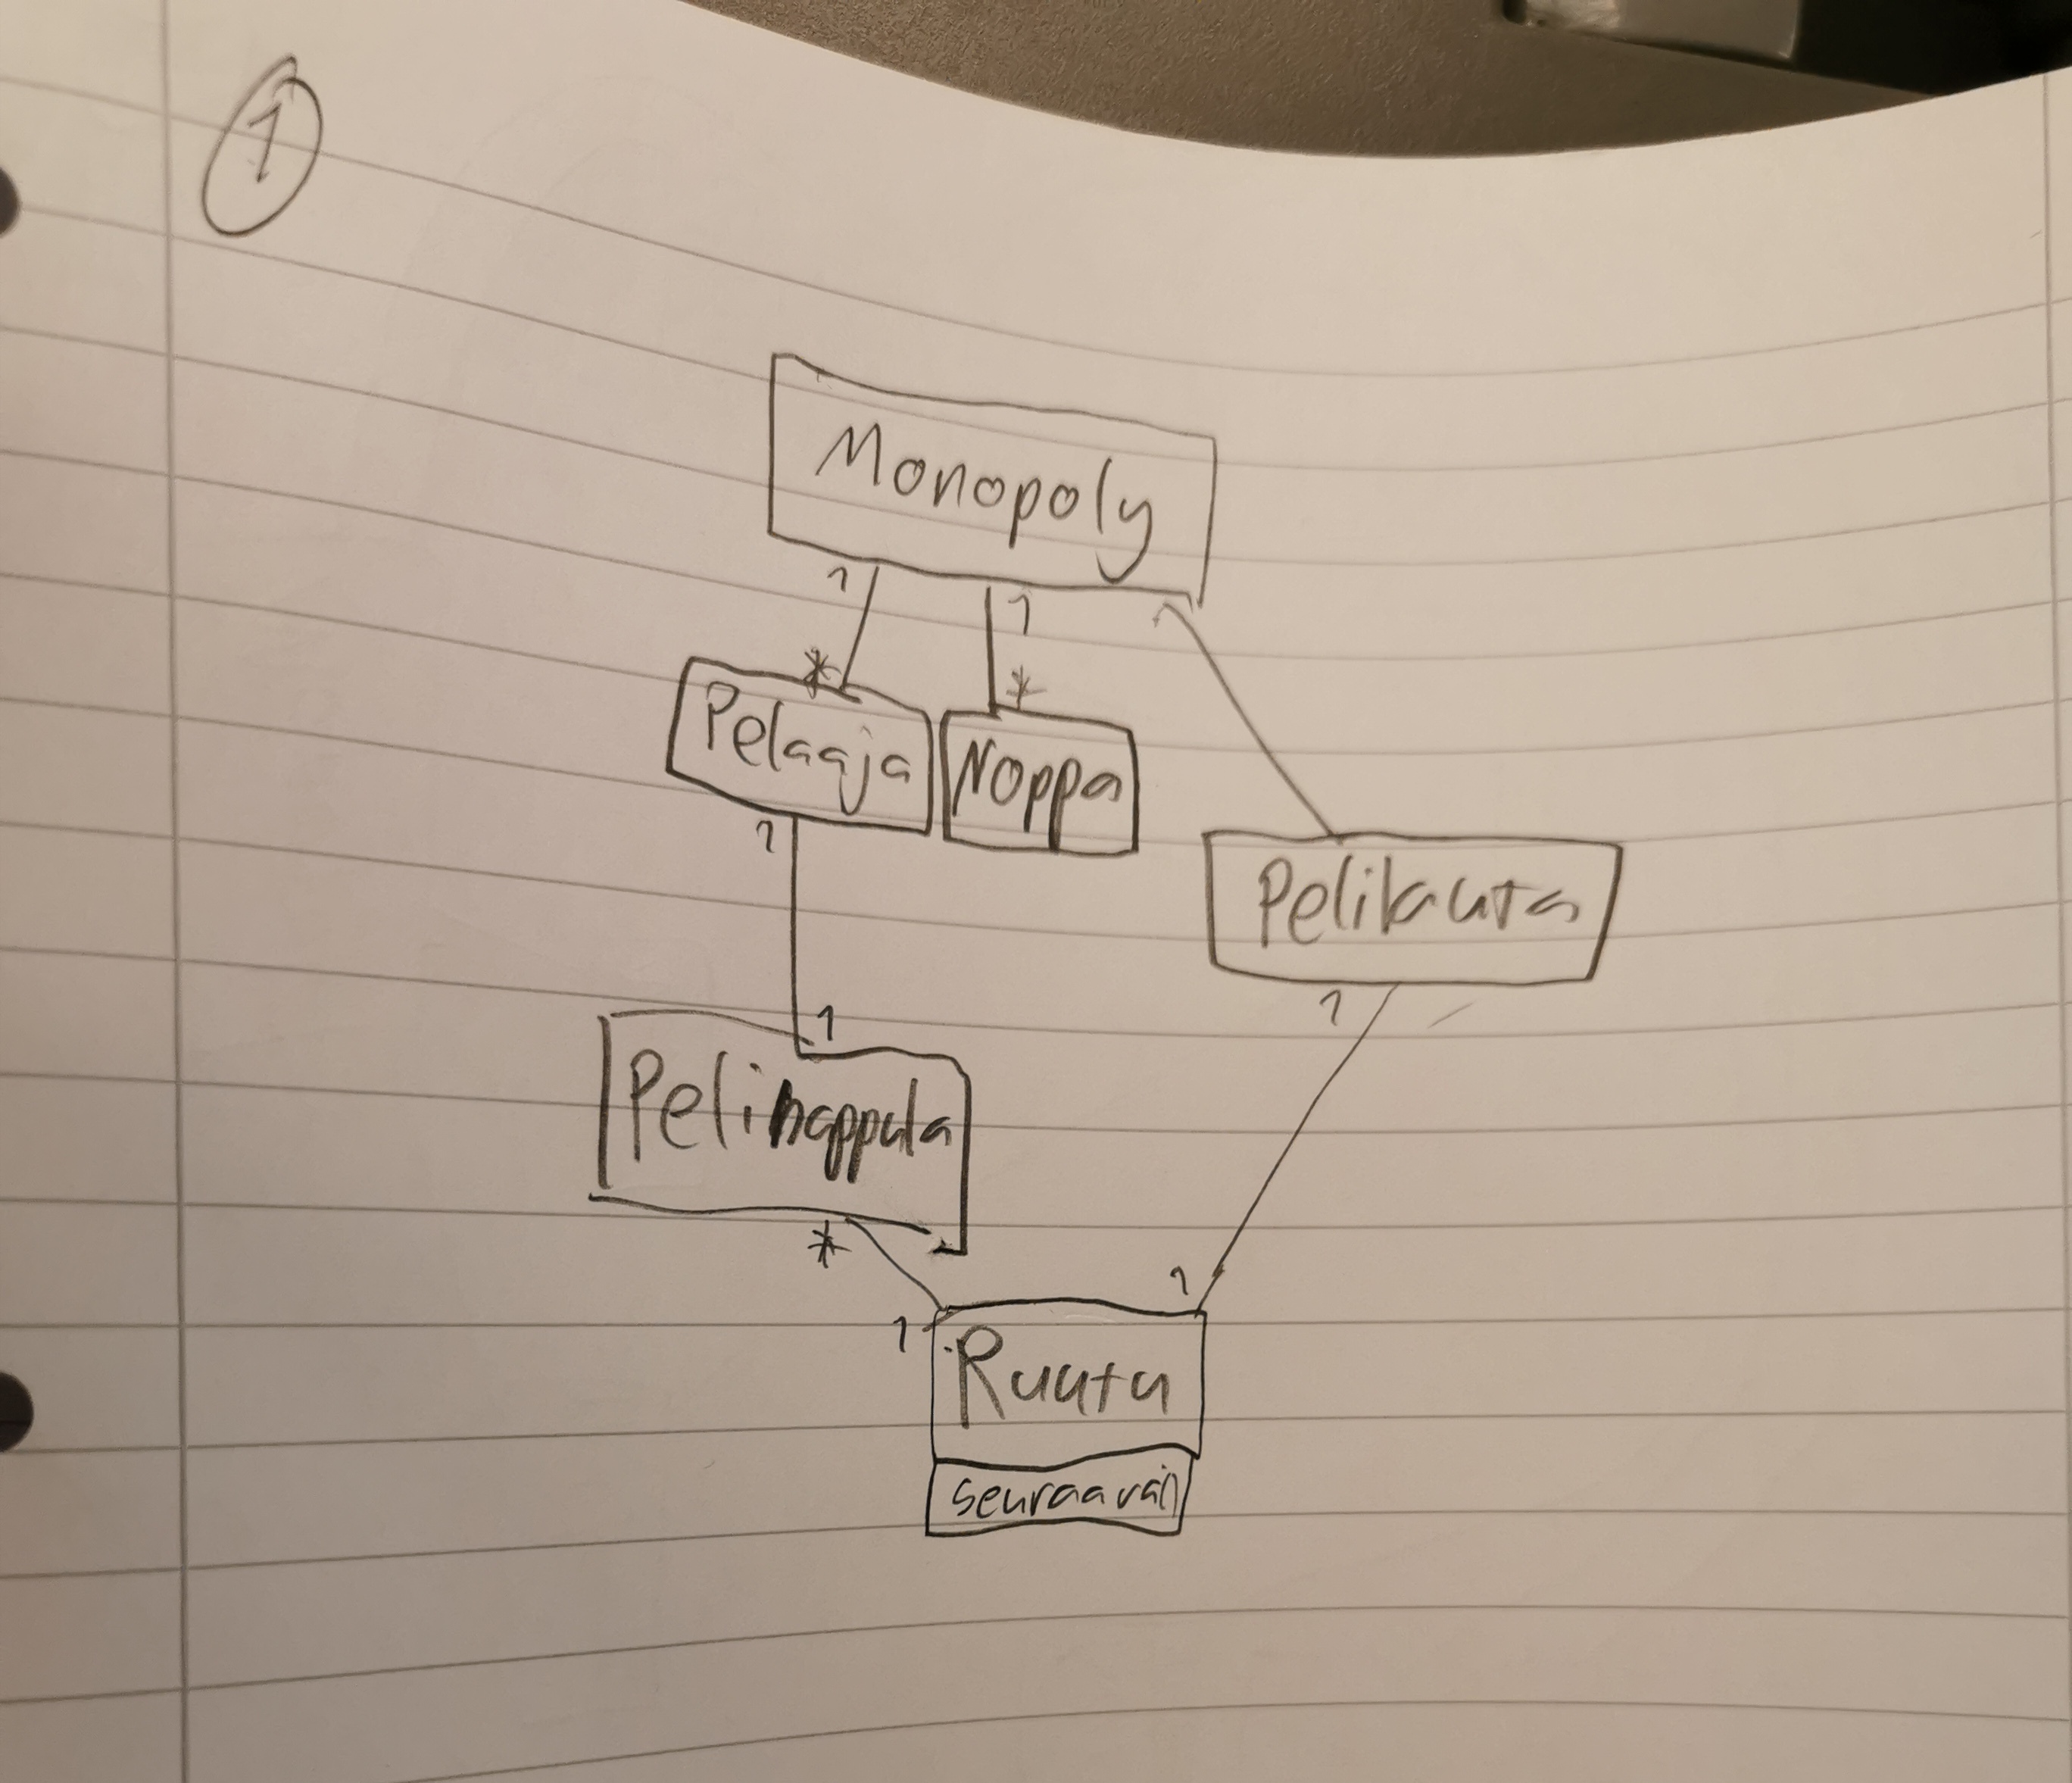 1
Monopoly
1 1
* *
Pelaaja Noppa
1
Pelilauta
1
1
Pelinappula
*
1
1
Ruutu
seuraava()